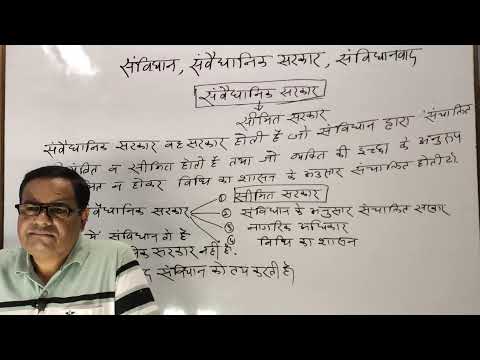 संविधान, संवैधानिक सरकार, संविधानवाद
संवैधानिक सरकार
सीमित सरकार
संवैधानिक सरकार वह सरकार होती है जो संविधान द्वारा संचालित
व सीमित होती है तथा जो व्यक्ति की इच्छा के अनुरूप
न होकर विधि का शासन के अनुसार संचालित होती है।
① सीमित सरकार
संवैधानिक सरकार ② संविधान के अनुसार संचालित सरकार
③ नागरिक अधिकार
में संविधान तो है ④ विधि का शासन
सरकार नहीं है।
संविधान को तय करती है।